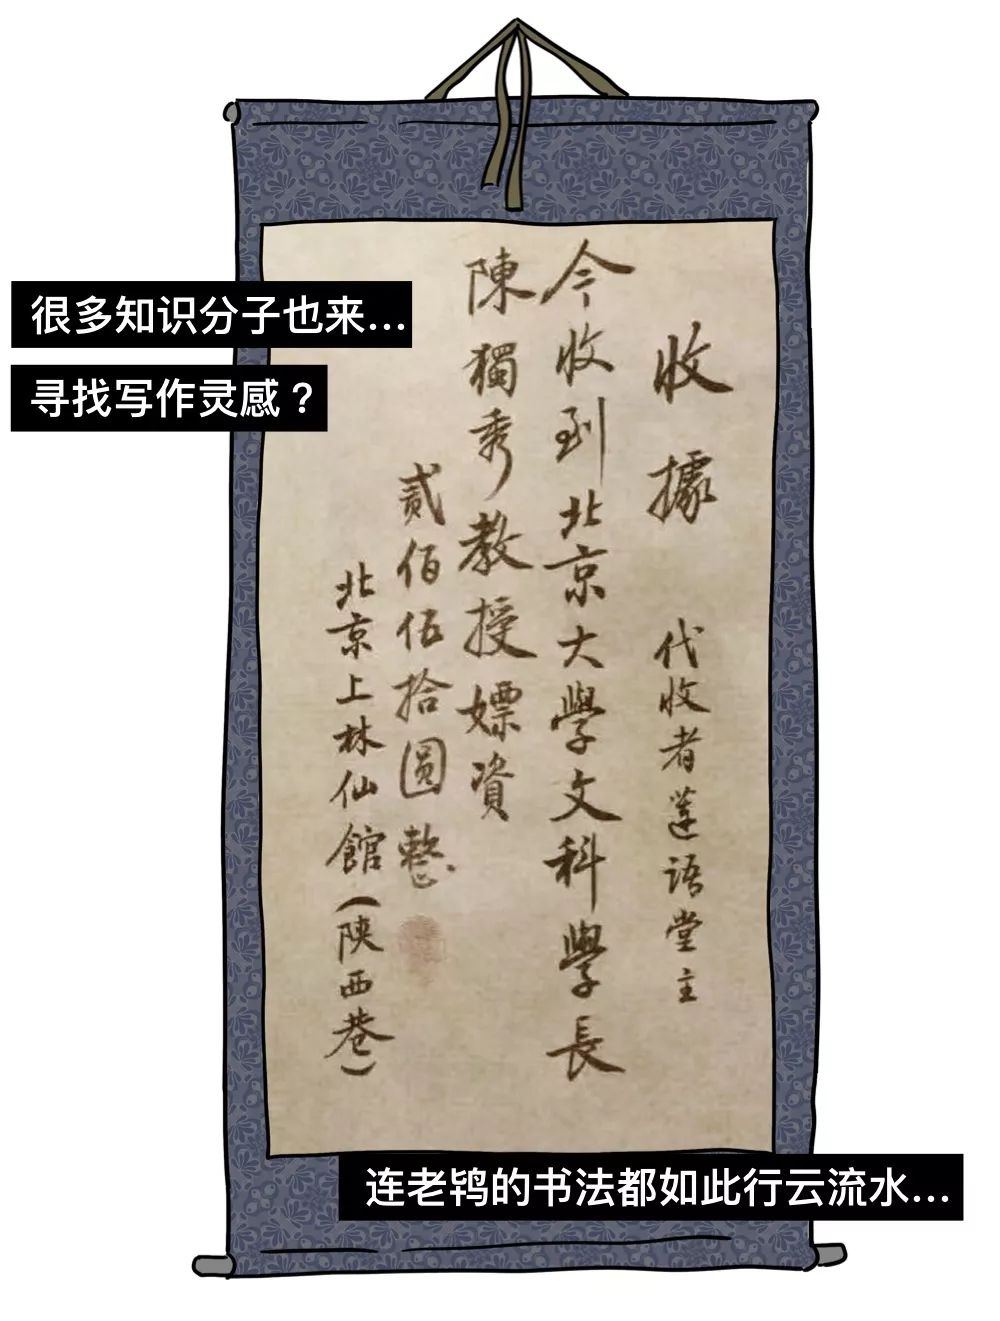 很多知识分子也来...
寻找写作灵感？
收據 代收者莲语堂主
今收到北京大學文科學長
陳獨秀教授嫖資
贰佰伍拾圆整
北京上林仙館(陕西巷)
连老鸨的书法都如此行云流水...